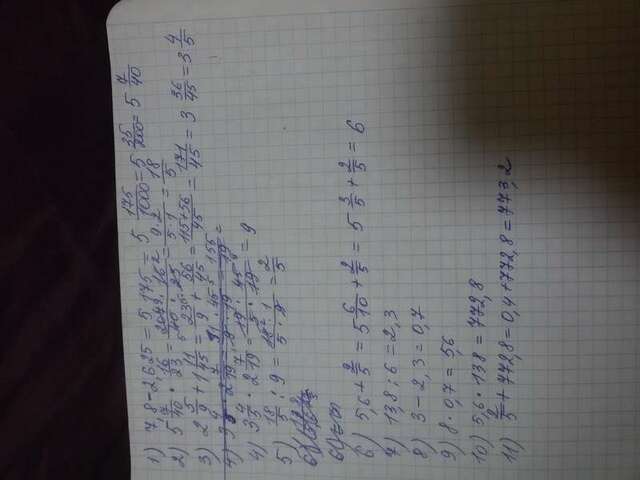 1) 7,8 - 2,625 = 5,175 = 5 175/1000 = 5 35/200 = 5 7/40
2) 5 7/40 · 16/23 = 207 · 16/40 · 23 = 9·2/5·1 = 18/5
3) 2 5/9 + 1 11/45 = 23/9 + 56/45 = 115+56/45 = 171/45 = 3 36/45 = 3 4/5
4) 3 4/5 · 2 7/19 = 19 · 45/5 · 19 = 9
5) 18/5 : 9 = 18 · 1/5 · 9 = 2/5
6) 5,6 + 2/5 = 5 6/10 + 2/5 = 5 3/5 + 2/5 = 6
7) 13,8 : 6 = 2,3
8) 3 - 2,3 = 0,7
9) 8 · 0,7 = 5,6
10) 5,6 · 138 = 772,8
11) 2/5 + 772,8 = 0,4 + 772,8 = 773,2